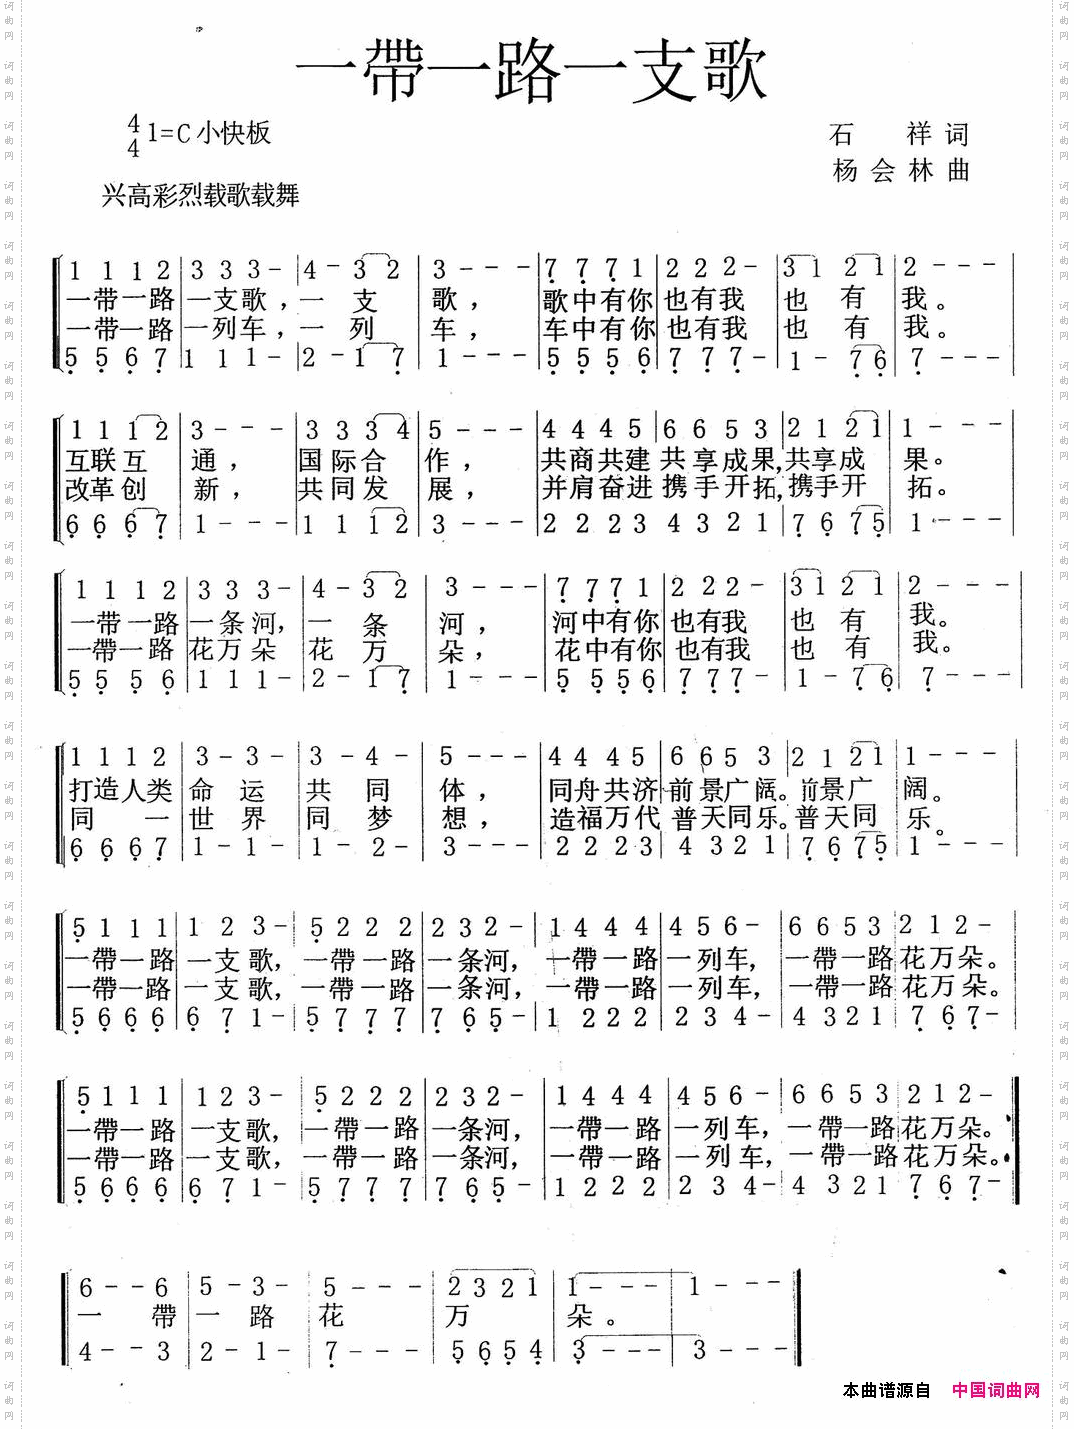 一帶一路一支歌
4/4 1=C 小快板
石 祥 词
杨会林 曲
兴高彩烈载歌载舞
1 1 1 2 | 3 3 3 - | 4 - 3 2 | 3 - - - | 7 7 7 1 | 2 2 2 - | 3 1 2 1 | 2 - - -
一带一路 一支歌，一 支 歌， 歌中有你 也有我 也 有 我。
一带一路 一列车，一 列 车， 车中有你 也有我 也 有 我。
5 5 6 7 | 1 1 1 - | 2 - 1 7 | 1 - - - | 5 5 5 6 | 7 7 7 - | 1 - 7 6 | 7 - - -
1 1 1 2 | 3 - - - | 3 3 3 4 | 5 - - - | 4 4 4 5 | 6 6 5 3 | 2 1 2 1 | 1 - - -
互联互 通， 国际合 作， 共商共建 共享成果，共享成 果。
改革创 新， 共同发 展， 并肩奋进 携手开拓，携手开 拓。
6 6 6 7 | 1 - - - | 1 1 1 2 | 3 - - - | 2 2 2 3 | 4 3 2 1 | 7 6 7 5 | 1 - - -
1 1 1 2 | 3 3 3 - | 4 - 3 2 | 3 - - - | 7 7 7 1 | 2 2 2 - | 3 1 2 1 | 2 - - -
一带一路 一条河，一 条 河， 河中有你 也有我 也 有 我。
一帶一路 花万朵 花 万 朵， 花中有你 也有我 也 有 我。
5 5 5 6 | 1 1 1 - | 2 - 1 7 | 1 - - - | 5 5 5 6 | 7 7 7 - | 1 - 7 6 | 7 - - -
1 1 1 2 | 3 - 3 - | 3 - 4 - | 5 - - - | 4 4 4 5 | 6 6 5 3 | 2 1 2 1 | 1 - - -
打造人类 命 运 共 同 体， 同舟共济 前景广阔。前景广 阔。
同 一 世 界 同 梦 想， 造福万代 普天同乐。普天同 乐。
6 6 6 7 | 1 - 1 - | 1 - 2 - | 3 - - - | 2 2 2 3 | 4 3 2 1 | 7 6 7 5 | 1 - - -
5 1 1 1 | 1 2 3 - | 5 2 2 2 | 2 3 2 - | 1 4 4 4 | 4 5 6 - | 6 6 5 3 | 2 1 2 -
一帶一路 一支歌，一帶一路 一条河，一帶一路 一列车，一帶一路 花万朵。
一帶一路 一支歌，一帶一路 一条河，一帶一路 一列车，一帶一路 花万朵。
5 6 6 6 | 6 7 1 - | 5 7 7 7 | 7 6 5 - | 1 2 2 2 | 2 3 4 - | 4 3 2 1 | 7 6 7 -
5 1 1 1 | 1 2 3 - | 5 2 2 2 | 2 3 2 - | 1 4 4 4 | 4 5 6 - | 6 6 5 3 | 2 1 2 -
一帶一路 一支歌，一帶一路 一条河，一帶一路 一列车，一帶一路 花万朵。
一帶一路 一支歌，一帶一路 一条河，一帶一路 一列车，一帶一路 花万朵。
5 6 6 6 | 6 7 1 - | 5 7 7 7 | 7 6 5 - | 1 2 2 2 | 2 3 4 - | 4 3 2 1 | 7 6 7 -
6 - - 6 | 5 - 3 - | 5 - - - | 2 3 2 1 | 1 - - - | 1 - - -
一 帶 一 路 花 万 朵。
4 - - 3 | 2 - 1 - | 7 - - - | 5 6 5 4 | 3 - - - | 3 - - -
本曲谱源自 中国词曲网